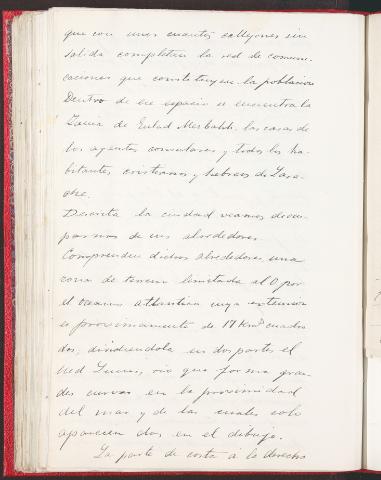 que con unos cuantos callejones sin
salida completan la red de comuni-
caciones que constituyen la población
Dentro de ese espacio se encuentra la
Zauia de las casas de
los agentes consulares y todos los ha-
bitantes, cristianos y hebreos de Lara-
che.
Descrita la ciudad veamos de ocu-
parnos de sus alrededores.
Comprenden dichos alrededores una
zona de terreno limitada al O por
el oceano atlantico cuya extension
es proximamente de 17 Km.s cuadra
dos, dividiendola en dos partes el
Ued Lucus, rio que forma gran-
des curvas en la proximidad
del mar y de las cuales solo
aparecen dos en el dibujo.
La parte de costa á la derecha